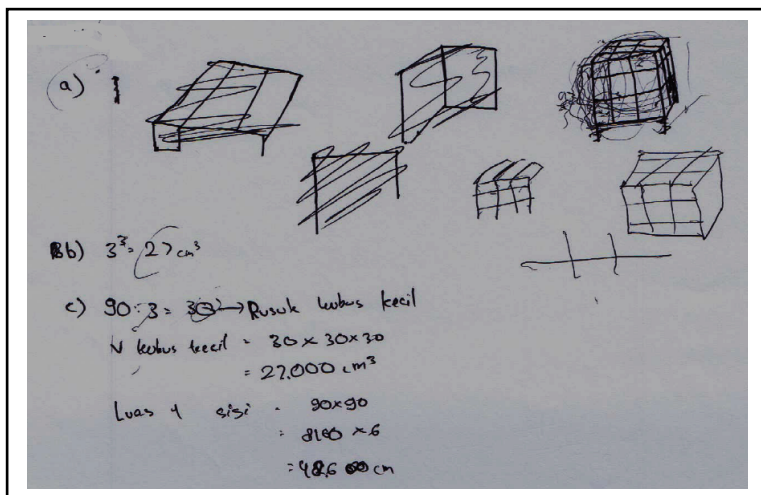 a)
b) 3³ = 27 cm³
c) 90 : 3 = 30 → Rusuk kubus kecil
V kubus kecil = 30 × 30 × 30
= 27.000 cm³
Luas 1 sisi = 90×90
= 8100 × 6
= 48.600 cm